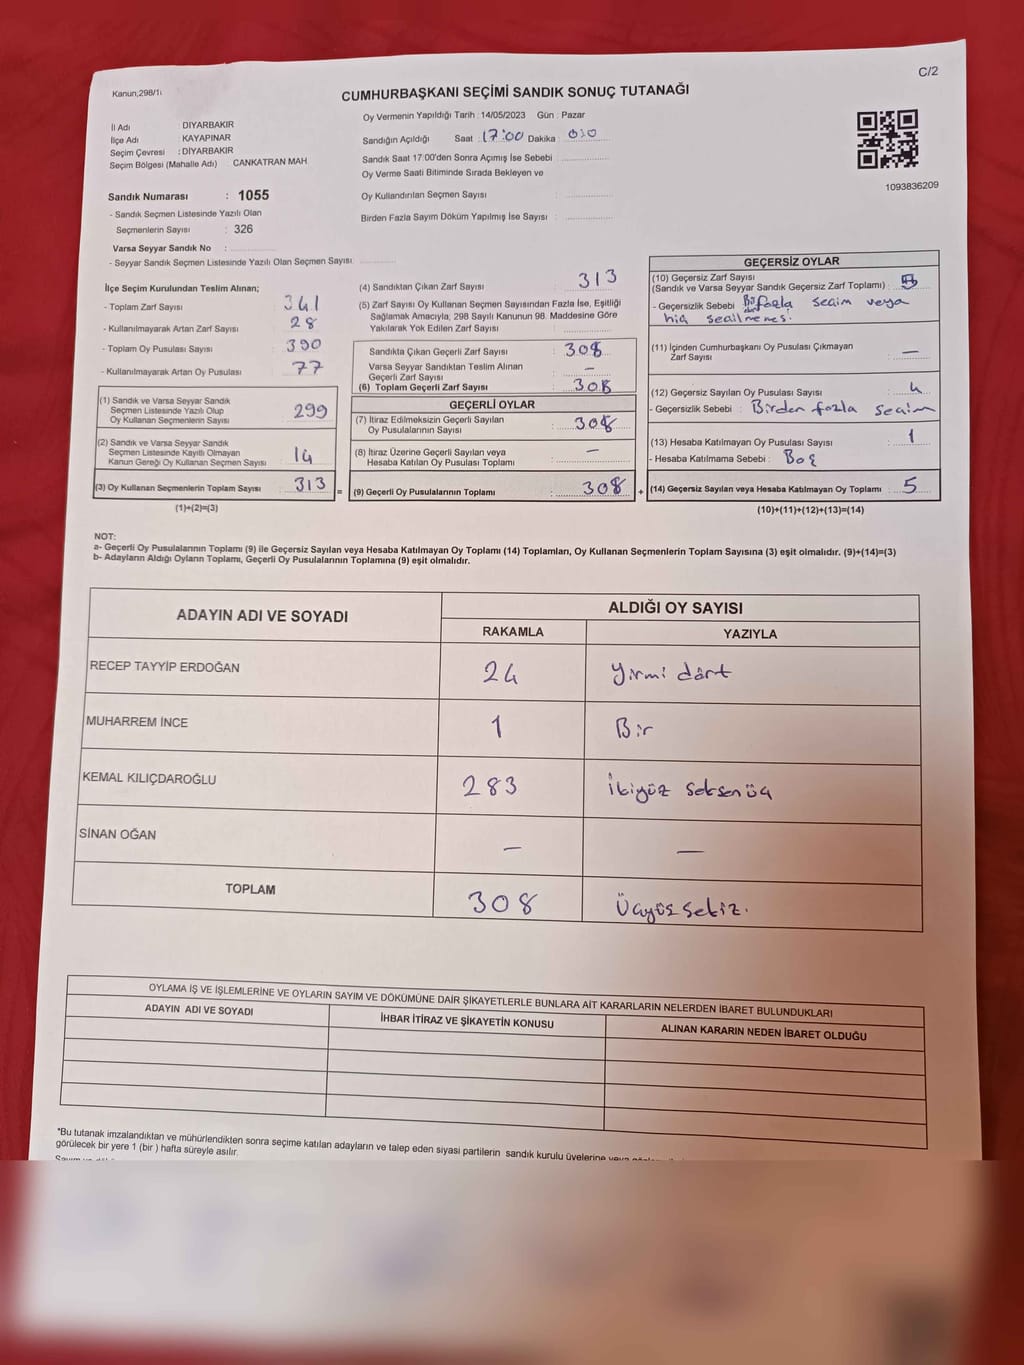 C/2
Kanun;298/1
CUMHURBAŞKANI SEÇİMİ SANDIK SONUÇ TUTANAĞI
İl Adı : DİYARBAKIR
İlçe Adı : KAYAPINAR
Seçim Çevresi : DİYARBAKIR
Seçim Bölgesi (Mahalle Adı) CANKATRAN MAH
Sandık Numarası : 1055
- Sandık Seçmen Listesinde Yazılı Olan
Seçmenlerin Sayısı : 326
Varsa Seyyar Sandık No :
- Seyyar Sandık Seçmen Listesinde Yazılı Olan Seçmen Sayısı
Oy Vermenin Yapıldığı Tarih : 14/05/2023 Gün : Pazar
Sandığın Açıldığı Saat : 17:00 Dakika :
Sandık Saat 17:00'den Sonra Açımış İse Sebebi
Oy Verme Saati Bitiminde Sırada Bekleyen ve
Oy Kullandırılan Seçmen Sayısı :
Birden Fazla Sayım Döküm Yapılmış İse Sayısı :
1093836209
İlçe Seçim Kurulundan Teslim Alınan;
- Toplam Zarf Sayısı : 341
- Kullanılmayarak Artan Zarf Sayısı : 28
- Toplam Oy Pusulası Sayısı : 390
- Kullanılmayarak Artan Oy Pusulası : 77
(1) Sandık ve Varsa Seyyar Sandık
Seçmen Listesinde Yazılı Olup
Oy Kullanan Seçmenlerin Sayısı : 299
(2) Sandık ve Varsa Seyyar Sandık
Seçmen Listesinde Kayıtlı Olmayan
Kanun Gereği Oy Kullanan Seçmen Sayısı : 14
(3) Oy Kullanan Seçmenlerin Toplam Sayısı : 313 =
(1)+(2)=(3)
(4) Sandıktan Çıkan Zarf Sayısı : 313
(5) Zarf Sayısı Oy Kullanan Seçmen Sayısından Fazla İse, Eşitliği
Sağlamak Amacıyla, 298 Sayılı Kanunun 98. Maddesine Göre
Yakılarak Yok Edilen Zarf Sayısı :
Sandıkta Çıkan Geçerli Zarf Sayısı : 308
Varsa Seyyar Sandıktan Teslim Alınan
Geçerli Zarf Sayısı : —
(6) Toplam Geçerli Zarf Sayısı : 308
GEÇERLİ OYLAR
(7) İtiraz Edilmeksizin Geçerli Sayılan
Oy Pusulalarının Sayısı : 308
(8) İtiraz Üzerine Geçerli Sayılan veya
Hesaba Katılan Oy Pusulası Toplamı : —
(9) Geçerli Oy Pusulalarının Toplamı : 308 +
GEÇERSİZ OYLAR
(10) Geçersiz Zarf Sayısı
(Sandık ve Varsa Seyyar Sandık Geçersiz Zarf Toplamı) :
- Geçersizlik Sebebi fazla seçim veya
hiç seçilmemes.
(11) İçinden Cumhurbaşkanı Oy Pusulası Çıkmayan
Zarf Sayısı : —
(12) Geçersiz Sayılan Oy Pusulası Sayısı : 4
- Geçersizlik Sebebi : Birden fazla seçim
(13) Hesaba Katılmayan Oy Pusulası Sayısı : 1
- Hesaba Katılmama Sebebi : Boş
(14) Geçersiz Sayılan veya Hesaba Katılmayan Oy Toplamı : 5
(10)+(11)+(12)+(13)=(14)
NOT:
a- Geçerli Oy Pusulalarının Toplamı (9) ile Geçersiz Sayılan veya Hesaba Katılmayan Oy Toplamı (14) Toplamları, Oy Kullanan Seçmenlerin Toplam Sayısına (3) eşit olmalıdır. (9)+(14)=(3)
b- Adayların Aldığı Oyların Toplamı, Geçerli Oy Pusulalarının Toplamına (9) eşit olmalıdır.
ADAYIN ADI VE SOYADI
ALDIĞI OY SAYISI
RAKAMLA YAZIYLA
RECEP TAYYİP ERDOĞAN 24 Yirmi dört
MUHARREM İNCE 1 Bir
KEMAL KILIÇDAROĞLU 283 İkiyüz seksen üç
SİNAN OĞAN — —
TOPLAM 308 Üçyüz sekiz.
OYLAMA İŞ VE İŞLEMLERİNE VE OYLARIN SAYIM VE DÖKÜMÜNE DAİR ŞİKAYETLERLE BUNLARA AİT KARARLARIN NELERDEN İBARET BULUNDUKLARI
ADAYIN ADI VE SOYADI İHBAR İTİRAZ VE ŞİKAYETİN KONUSU ALINAN KARARIN NEDEN İBARET OLDUĞU
*Bu tutanak imzalandıktan ve mühürlendikten sonra seçime katılan adayların ve talep eden siyasi partilerin sandık kurulu üyelerine veya
görülecek bir yere 1 (bir ) hafta süreyle asılır.